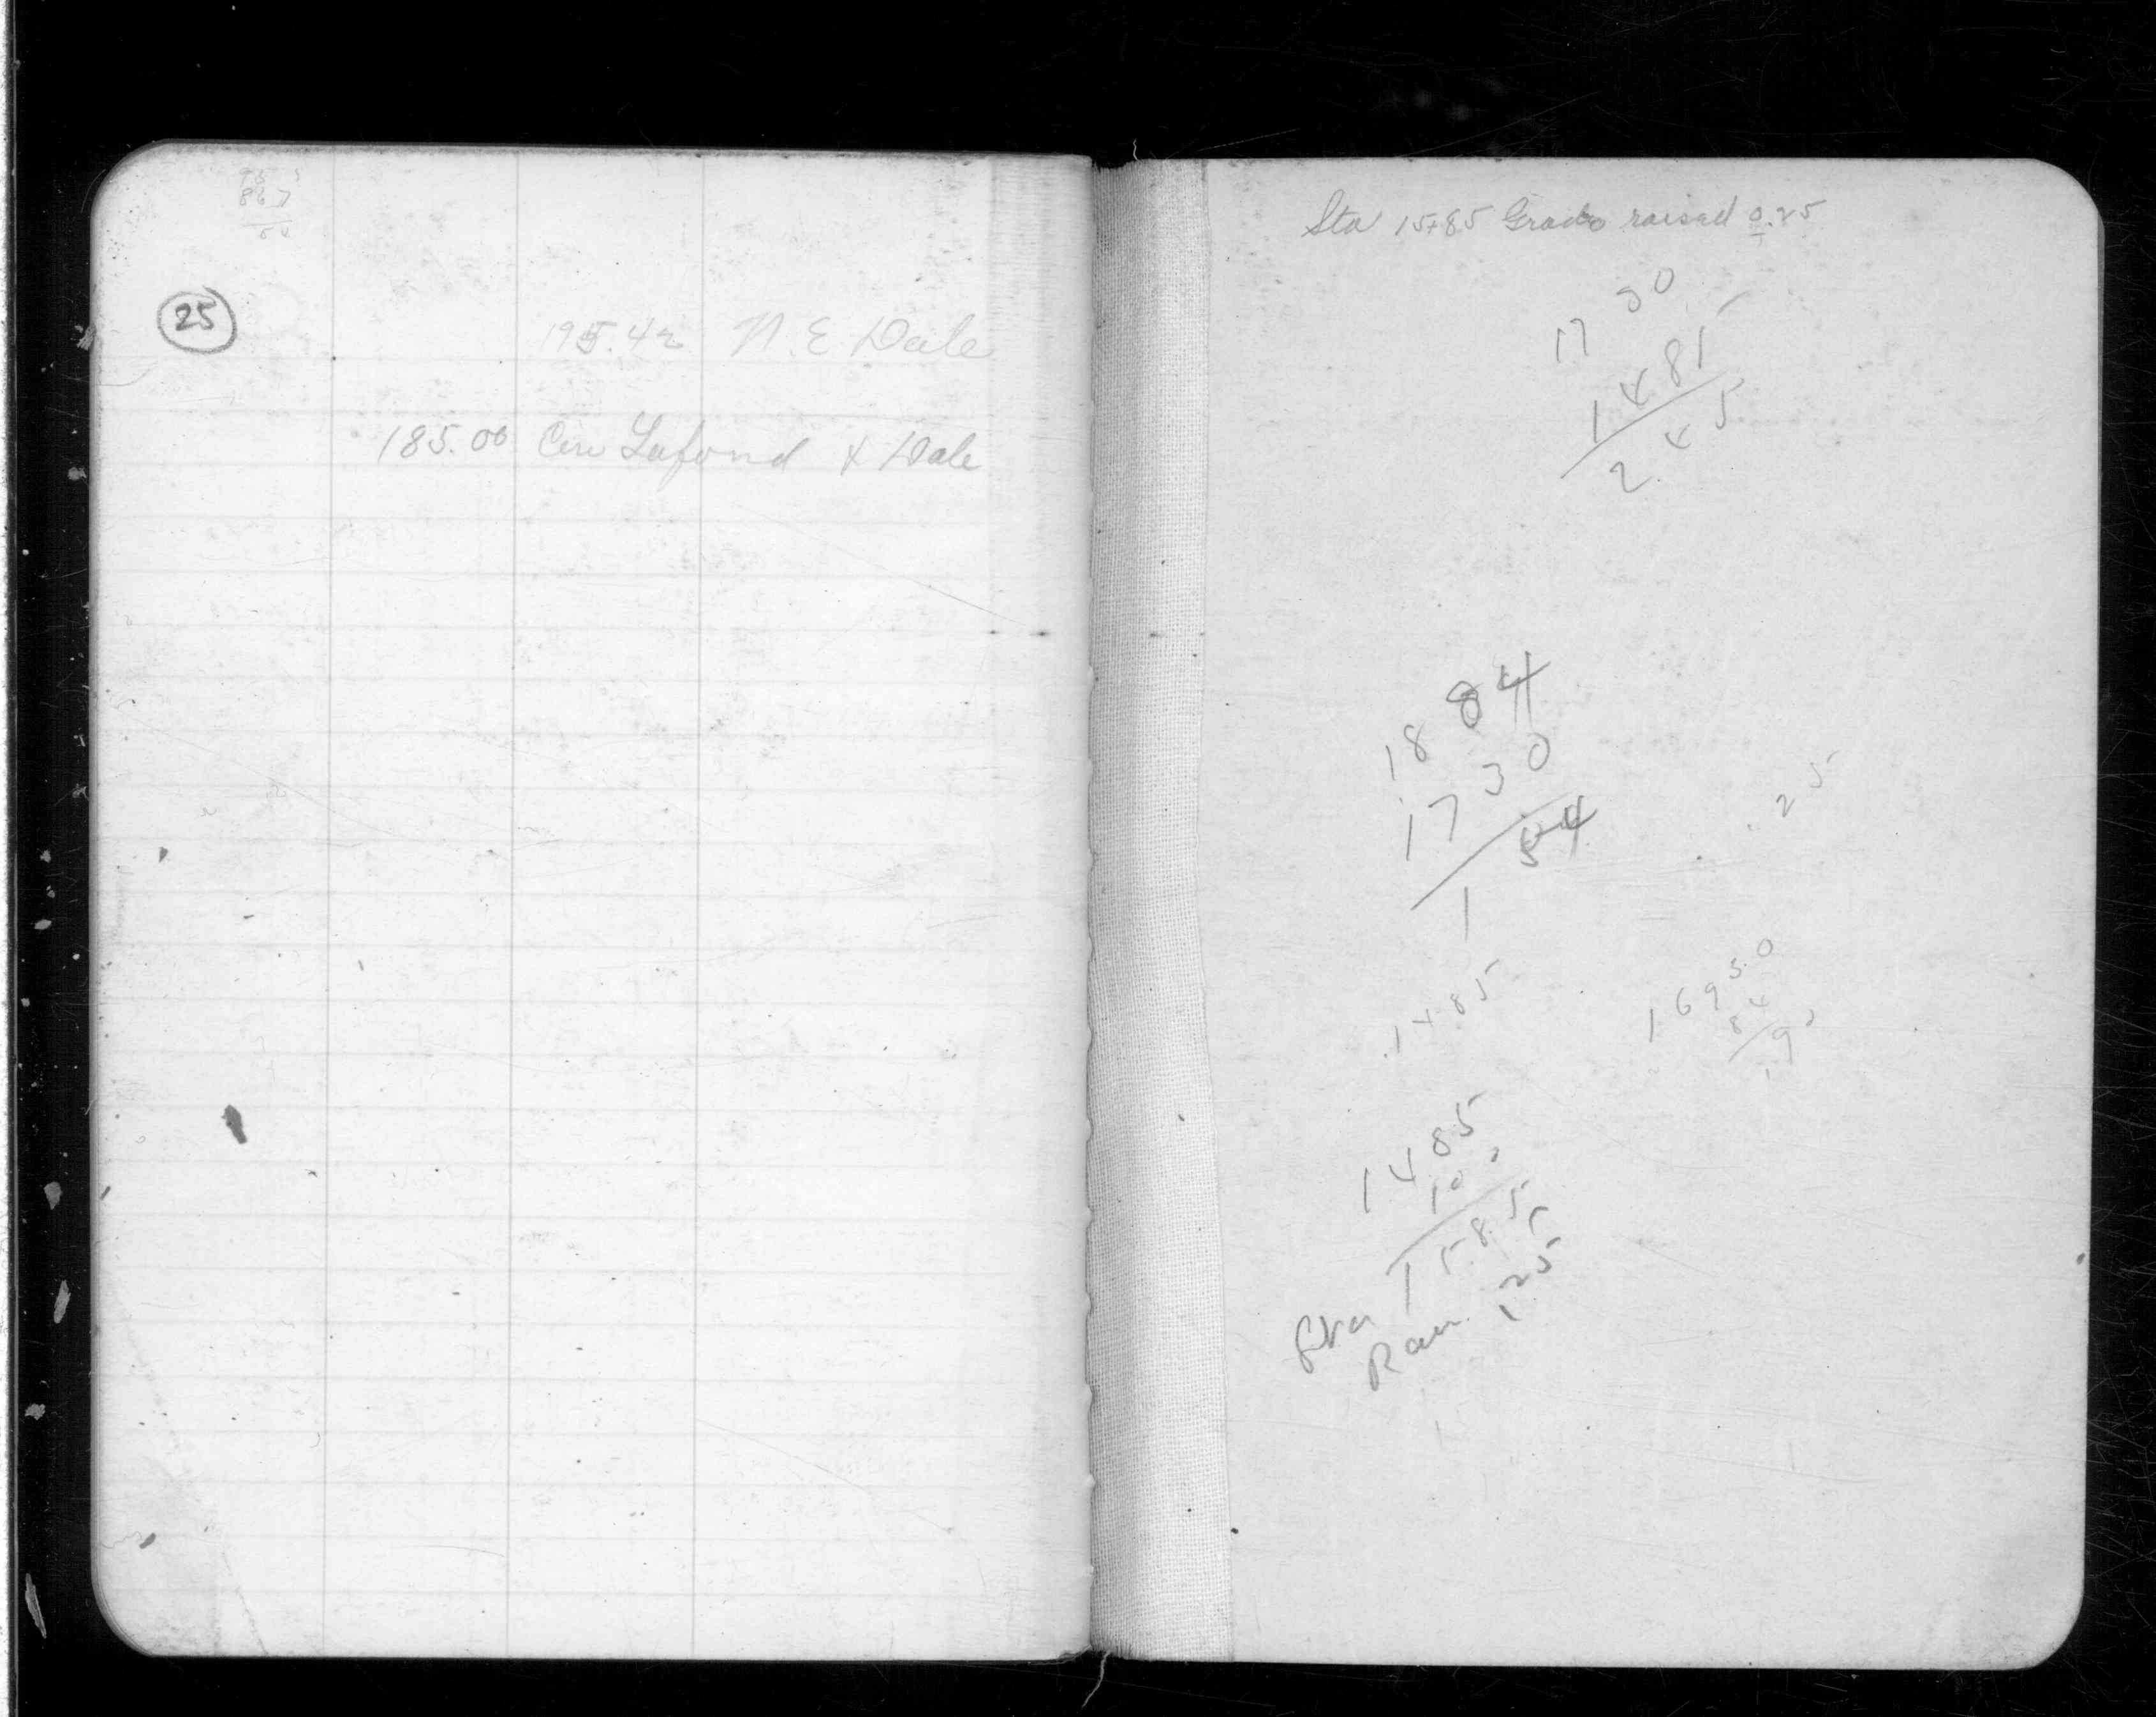 867
25
195.42 N.E Dale
185.00 Cen Lafond & Dale
Sta 15+85 Grade raised 0.25
17 30
14 85
2 45
18 84
17 30
1 54
.25
14 85
169 50
84
14 85
10
15.85
Sta
.25